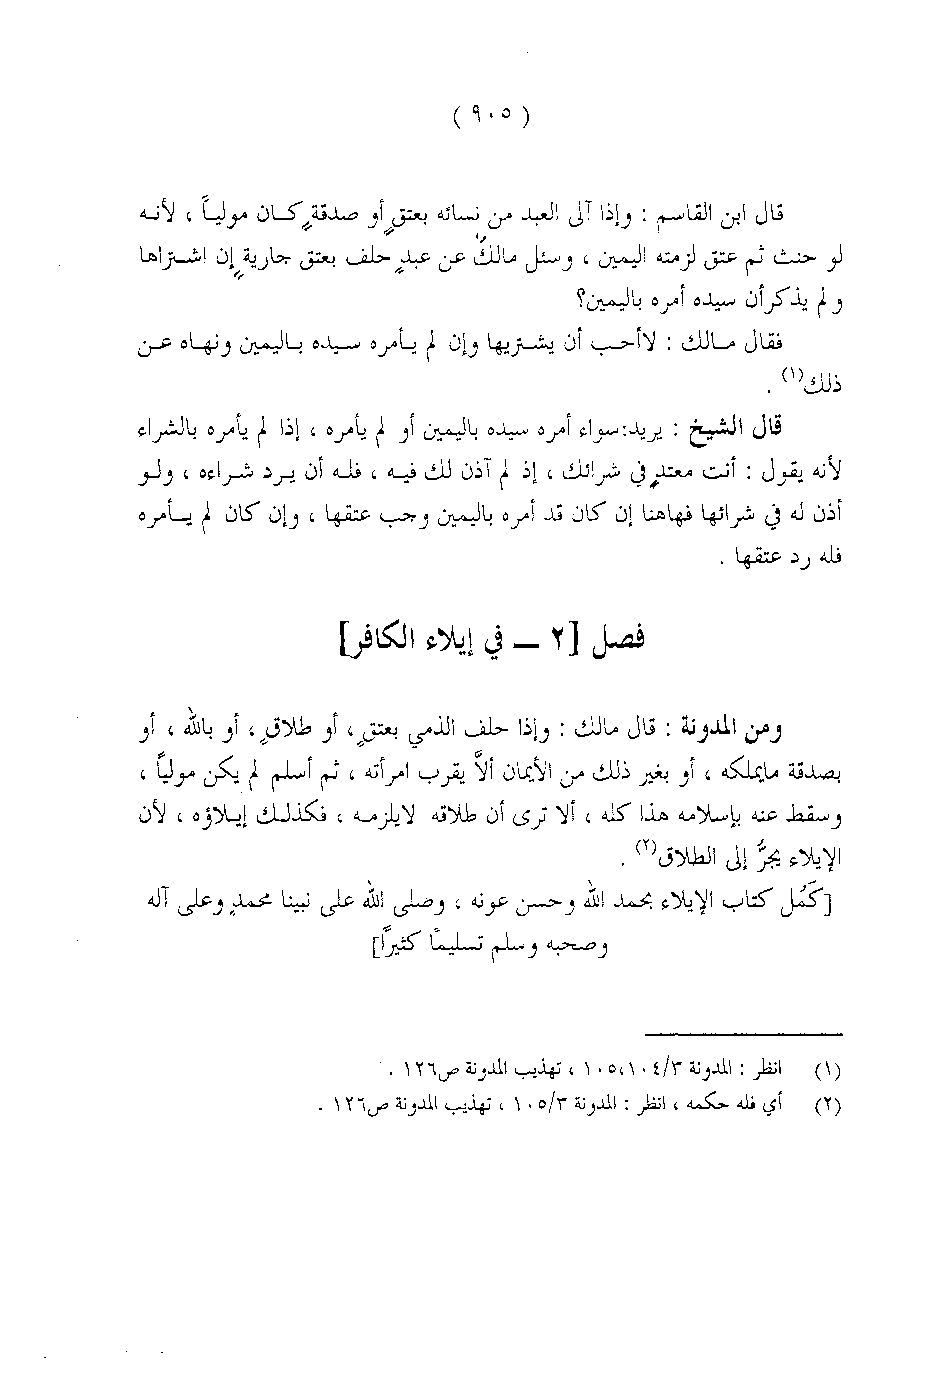 ( ٩٠٥ )
قال ابن القاسم : وإذا آلى العبد من نسائه بعتقٍ أو صدقةٍ كان مولياً ، لأنه
لو حنث ثم عتق لزمته اليمين ، وسئل مالكٌ عن عبدٍ حلف بعتق جاريةٍ إن اشتراها
و لم يذكرأن سيده أمره باليمين؟
فقال مالك : لاأحب أن يشتريها وإن لم يأمره سيده باليمين ونهاه عن
ذلك(١) .
قال الشيخ : يريد:سواء أمره سيده باليمين أو لم يأمره ، إذا لم يأمره بالشراء
لأنه يقول : أنت معتدٍ في شرائك ، إذ لم آذن لك فيه ، فله أن يرد شراءه ، ولو
أذن له في شرائها فهاهنا إن كان قد أمره باليمين وجب عتقها ، وإن كان لم يأمره
فله رد عتقها .
فصل [٢ – في إيلاء الكافر]
ومن المدونة : قال مالك : وإذا حلف الذمي بعتقٍ ، أو طلاقٍ ، أو بالله ، أو
بصدقة مايملكه ، أو بغير ذلك من الأيمان ألاَّ يقرب امرأته ، ثم أسلم لم يكن مولياً ،
وسقط عنه بإسلامه هذا كله ، ألا ترى أن طلاقه لايلزمه ، فكذلك إيلاؤه ، لأن
الإيلاء يجرُّ إلى الطلاق(٢) .
[كَمُل كتاب الإيلاء بحمد الله وحسن عونه ، وصلى الله على نبينا محمدٍ وعلى آله
وصحبه وسلم تسليماً كثيراً]
(١) انظر : المدونة ١٠٥،١٠٤/٣ ، تهذيب المدونة ص١٢٦ .
(٢) أي فله حكمه ، انظر : المدونة ١٠٥/٣ ، تهذيب المدونة ص١٢٦ .